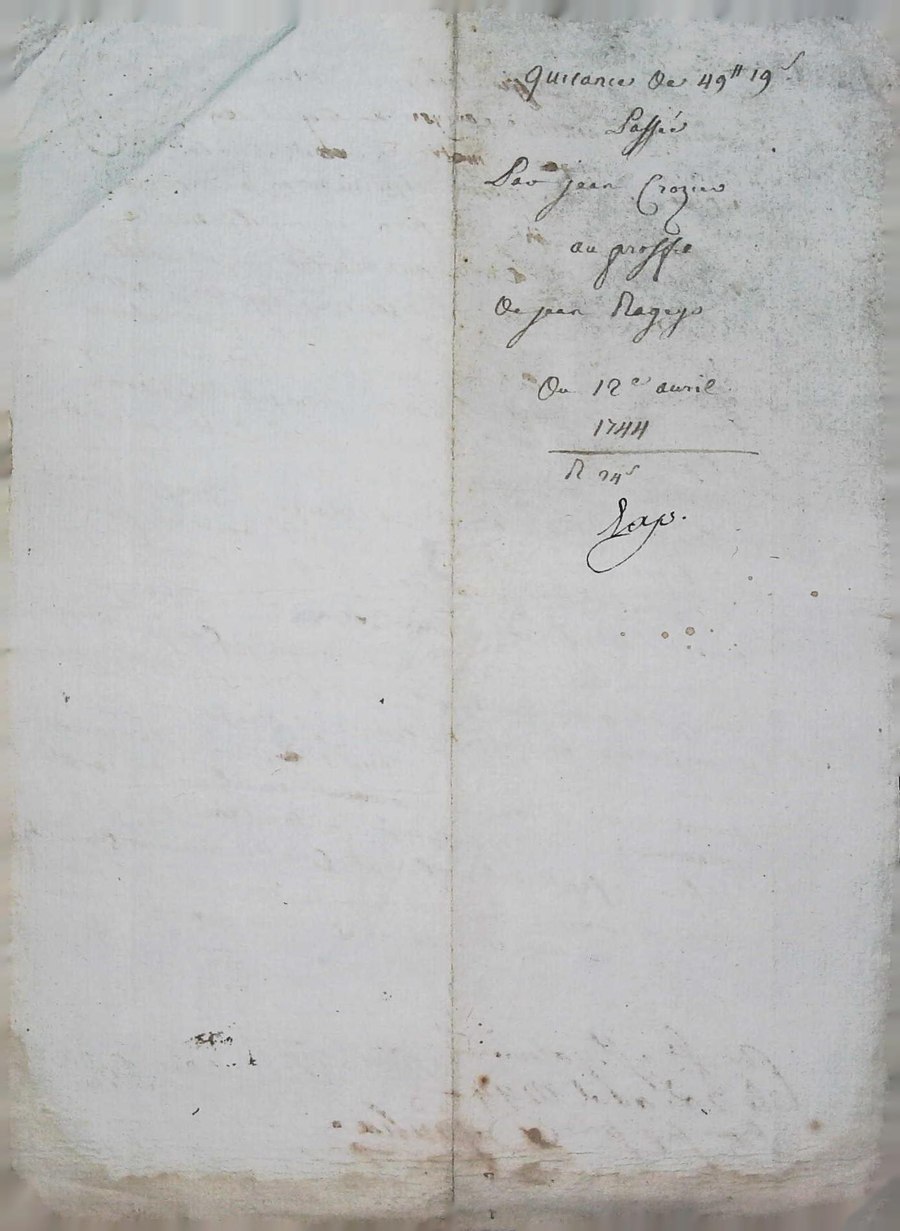 quitance de 49# 19s
Passée
Par jean Crozier
au proffit
de jean Rageys
Du 12e auril
1744
R 24s